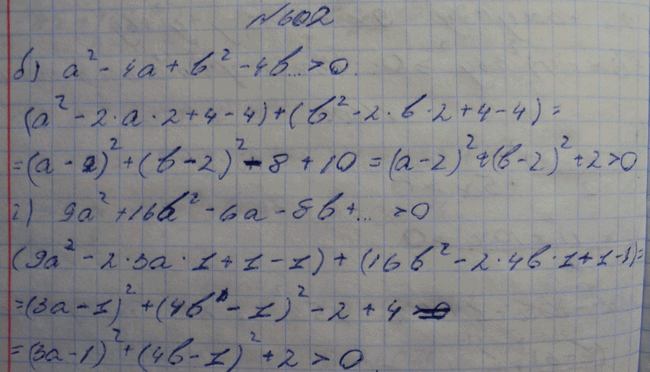 №602
б) a² - 4a + b² - 4b... > 0
(a² - 2·a·2 + 4 - 4) + (b² - 2·b·2 + 4 - 4) =
= (a - 2)² + (b - 2)² - 8 + 10 = (a - 2)² + (b - 2)² + 2 > 0
г) 9a² + 16b² - 6a - 8b + ... > 0
(9a² - 2·3a·1 + 1 - 1) + (16b² - 2·4b·1 + 1 - 1) =
= (3a - 1)² + (4b - 1)² - 2 + 4
= (3a - 1)² + (4b - 1)² + 2 > 0